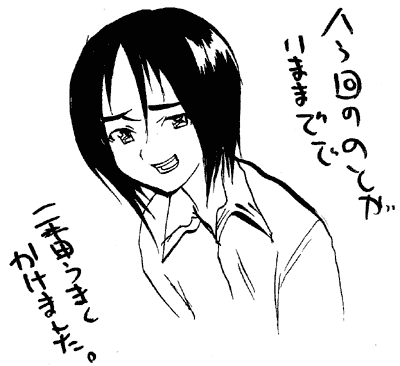 今回ののどが
いままでで
一番うまく
かけました。